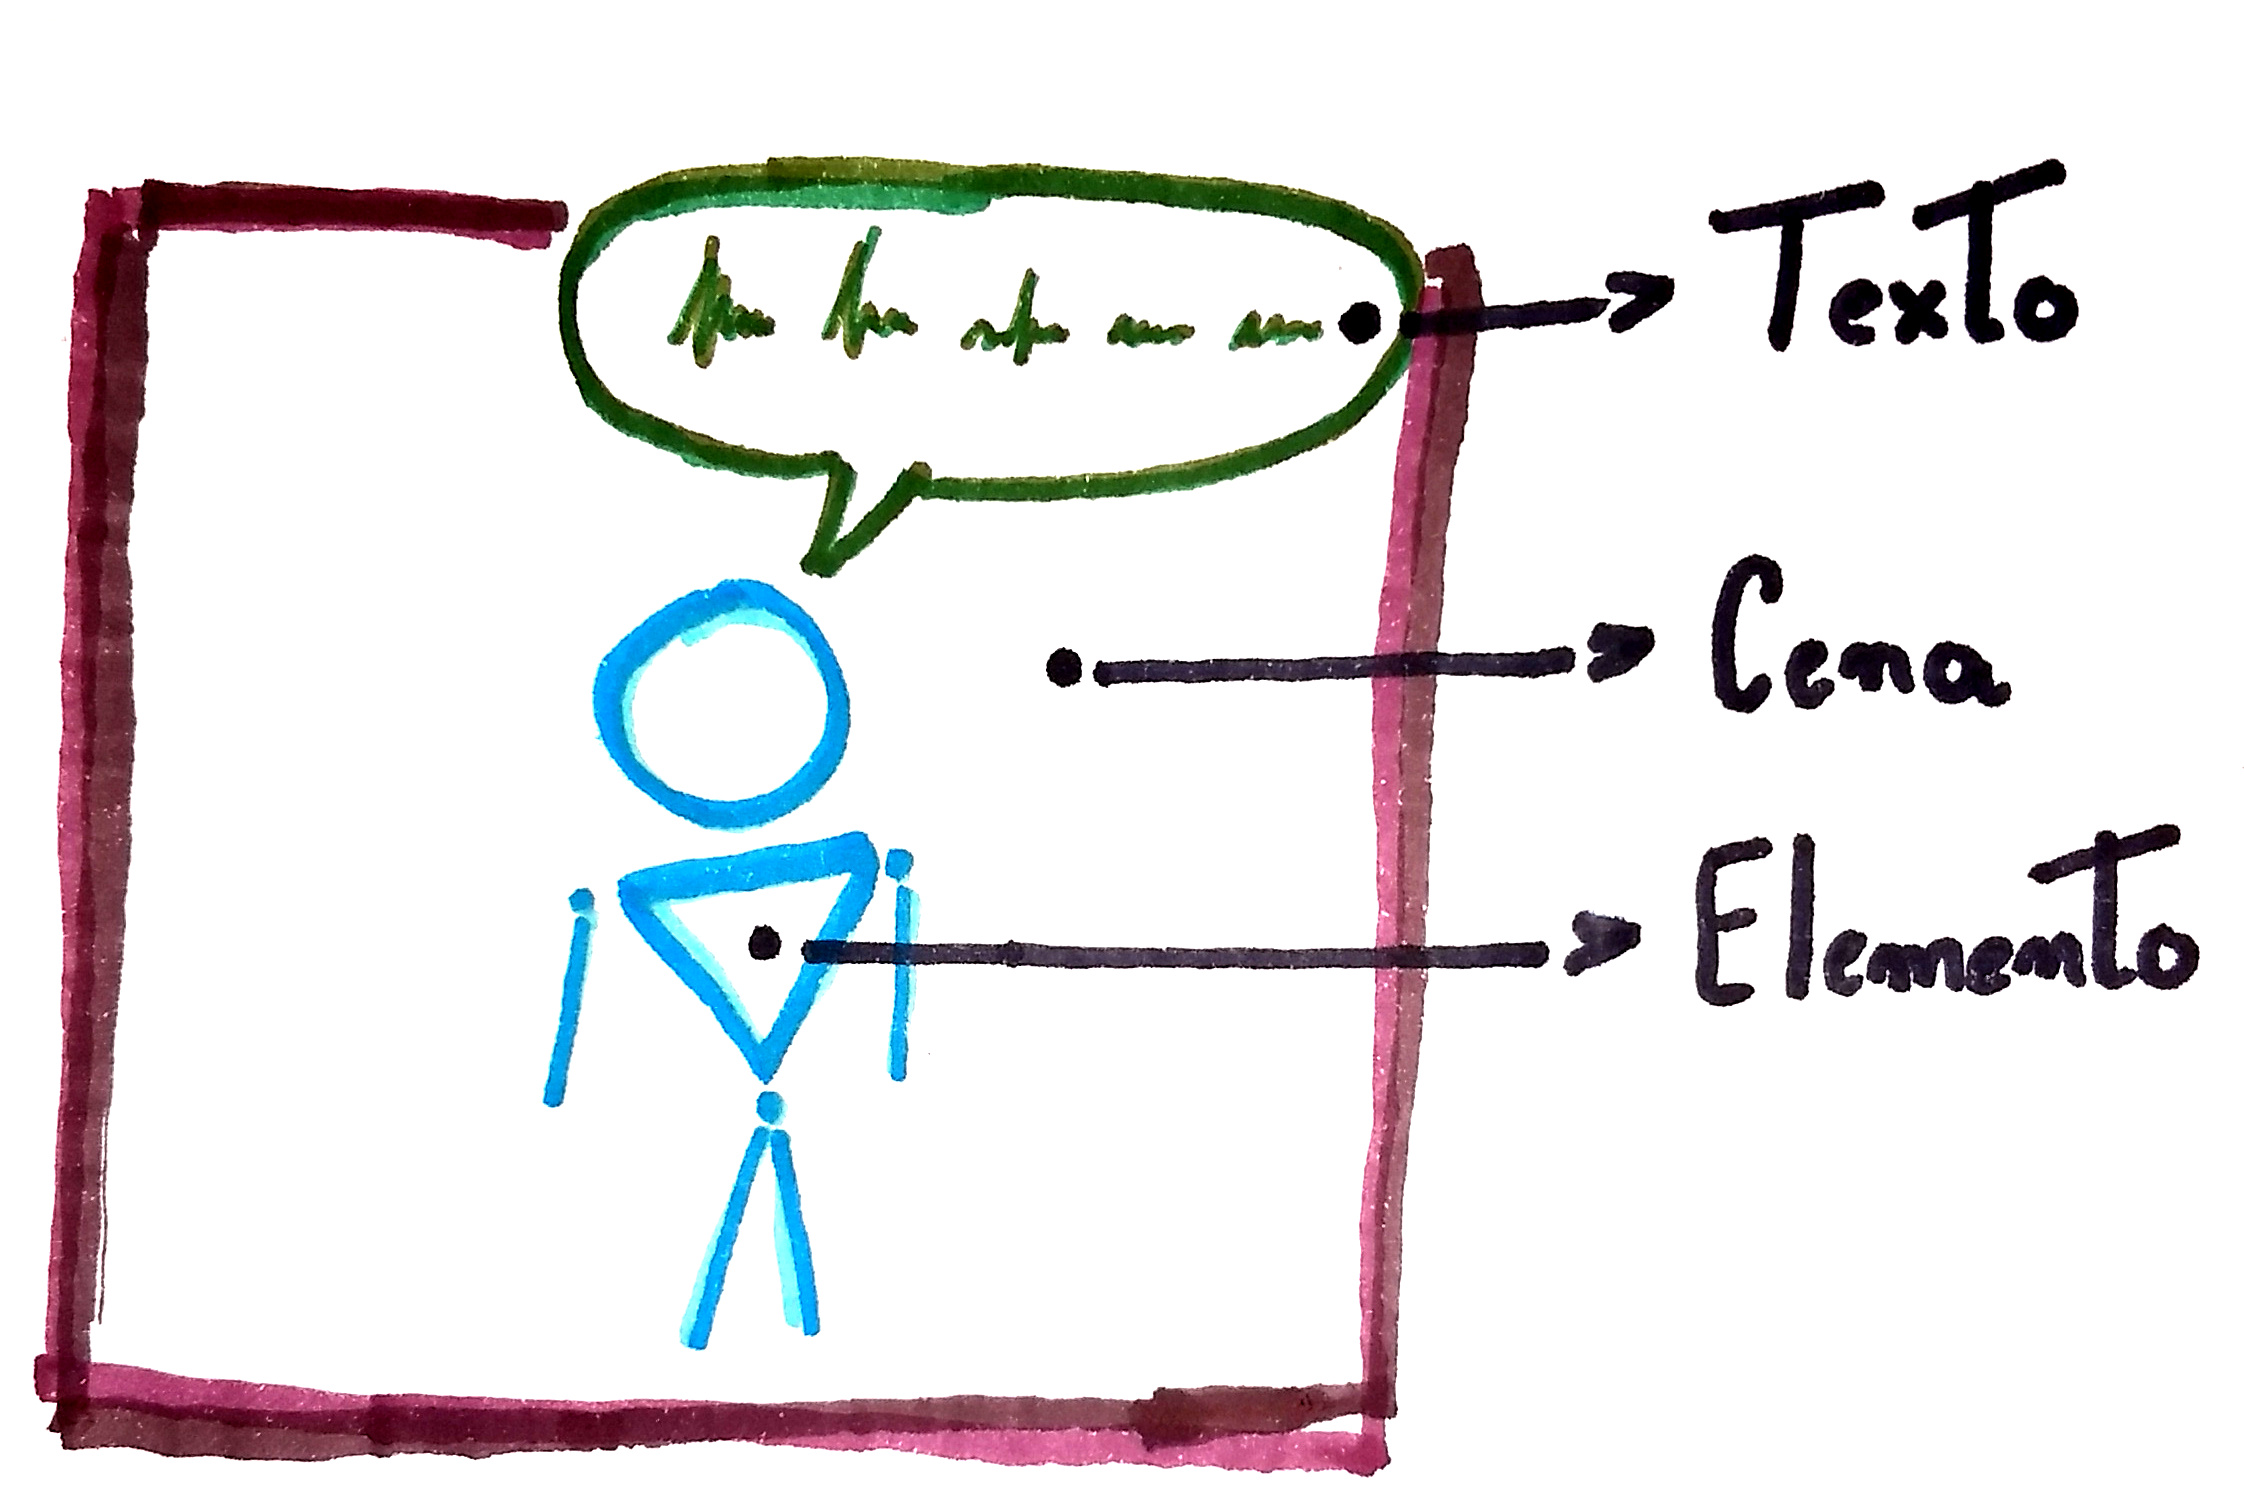 Texto
Cena
Elemento